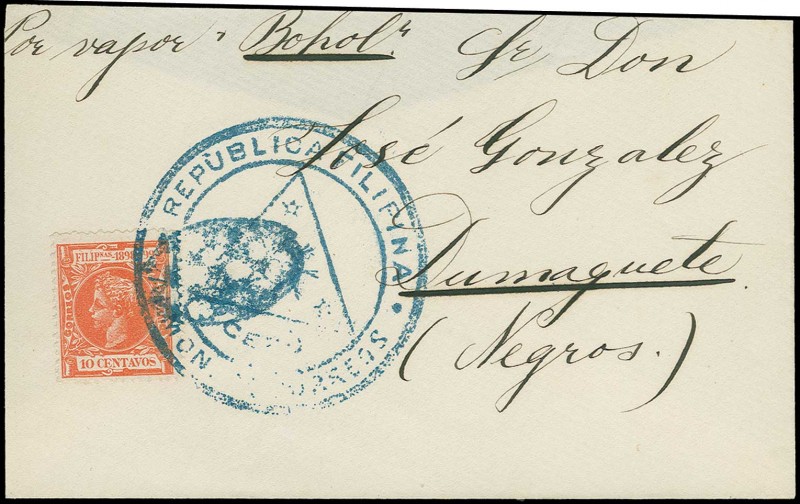 Por vapor "Bohol"
Sr Don
José Gonzalez
Dumaguete
(Negros.)
REPUBLICA FILIPINA
CEBU
CORREOS
FILIPNAS-1898
CORREOS
10 CENTAVOS